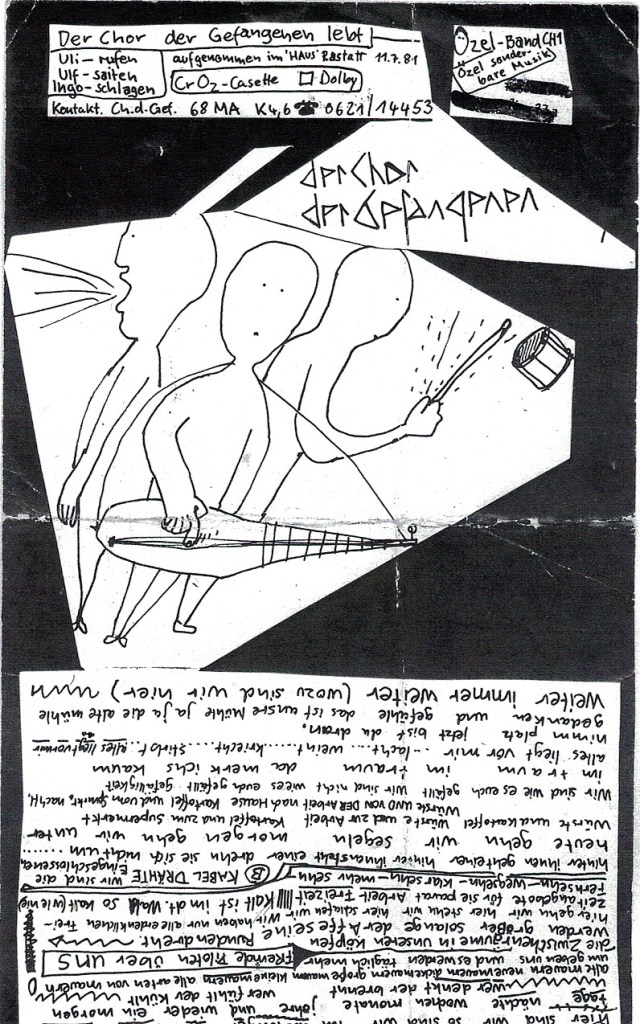 Der Chor der Gefangenen lebt
Uli-rufen
Ulf-saiten
Ingo-schlagen
aufgenommen im 'HAUS' Rastatt 11.7.81
CrO2-Casette □ Dolby
Kontakt. Ch.d.Gef. 68 MA K4,6 ☎ 0621/14453
Özel-Band CH1
Özel sonder-
bare Musik
der Chor
der Gefangenen
hier sind wir so sind wir
tage nächte wochen monate jahre und wieder ein morgen
wer denkt der brennt wer fühlt der kühlt
alte mauern neue mauern dicke mauern große mauern kleine mauern alle arten von mauern
umgeben uns und es werden täglich mehr
Fremde Piloten über uns
die Zwischenräume in unseren köpfen Runden dreht
werden größer solange der Affe seine
hier gehn wir hier stehn wir hier schlafen wir wir haben nur alle erdenklichen
zeitangebote für sie parat Arbeit Freizeit Kalt ist im dt. Wald so kalt (wie nie)
Fernsehn-wegsehn-klarsehn-mehr sehn
B KABEL DRÄHTE wir sind die Eingeschlossenen
hinter ihnen geht einer hinter ihnen steht einer drehn sie sich nicht um......
heute gehn wir segeln morgen gehn wir unter
Würste und kartoffel Würste und zur Arbeit Kartoffel und zum Supermarkt
Würste und von DER Arbeit nach Hause Kartoffel und vom
Wir sind wie es euch gefällt wir sind nicht wie es euch gefällt gefälligkeit
im traum im traum da merk ichs kaum
alles liegt vor mir...lacht....weint.....kriecht.......stirbt...alles liegt vor mir
nimm platz jetzt bist du dran.
gedanken und gefühle das ist unsre Mühle ja ja die alte mühle
Weiter immer weiter (wozu sind wir hier)